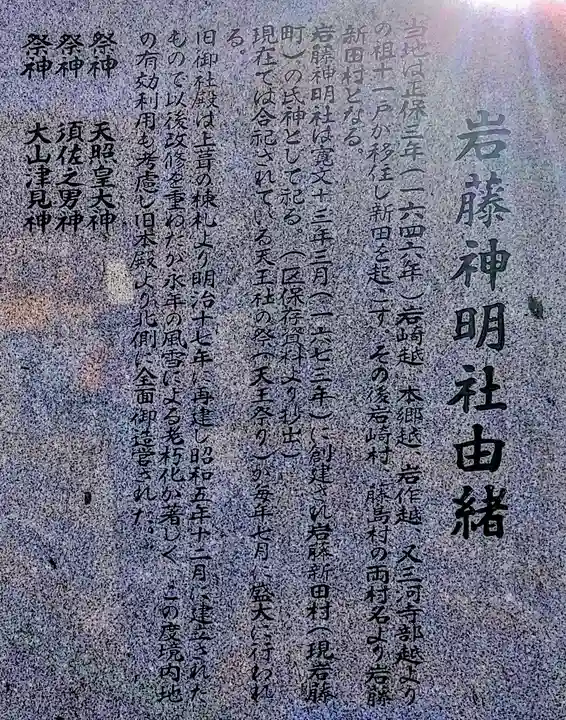 岩藤神明社由緒
当地は正保三年(一六四六年)岩崎越 本郷越 岩作越 又三河寺部越より
の祖十一戸が移住し新田を起こす その後岩崎村 藤島村の両村名より岩藤
新田村となる。
岩藤神明社は寛文十三年三月(一六七三年)に創建され岩藤新田村(現岩藤
町)の氏神として祀る。(区保存資料より抄出)
現在では合祀されている天王社の祭(天王祭り)が毎年七月に盛大に行われ
る。
旧御社殿は上葺の棟札より明治十七年に再建し昭和五年十二月に建立された
もので以後改修を重ねたが永年の風雪による老朽化が著しく この度境内地
の有効利用も考慮し旧本殿より北側に全面御造営された。
祭神 天照皇大神
祭神 須佐之男神
祭神 大山津見神